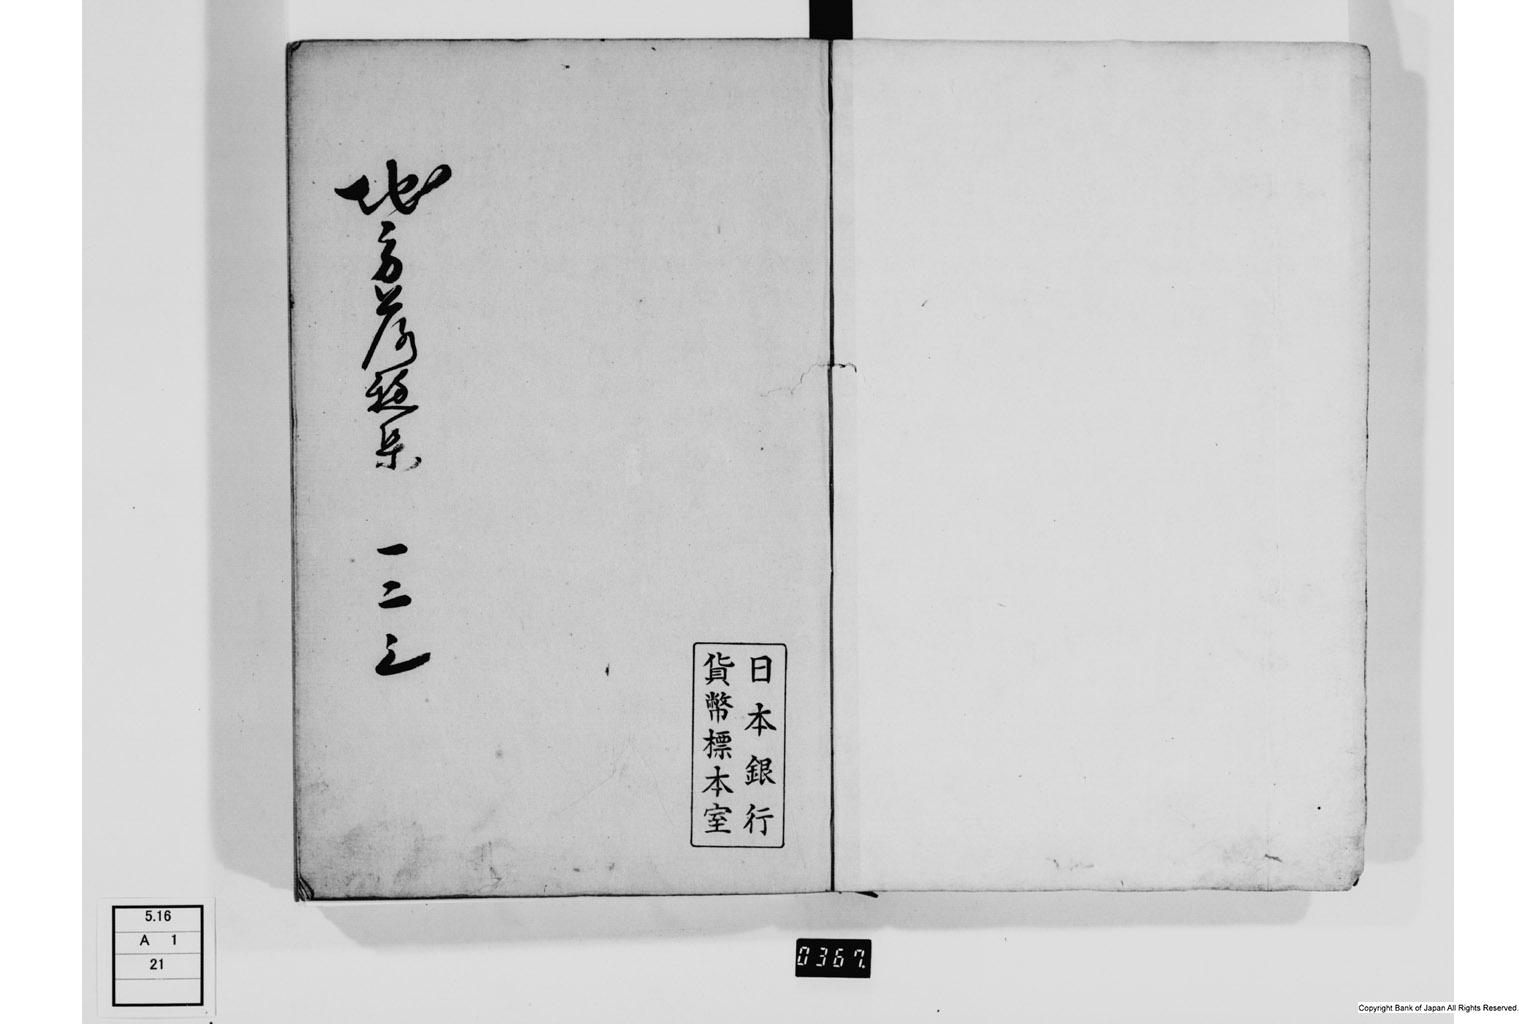 地方落穂集
一
二
三
日本銀行
貨幣標本室
5.16
A 1
21
0367.
Copyright Bank of Japan All Rights Reserved.